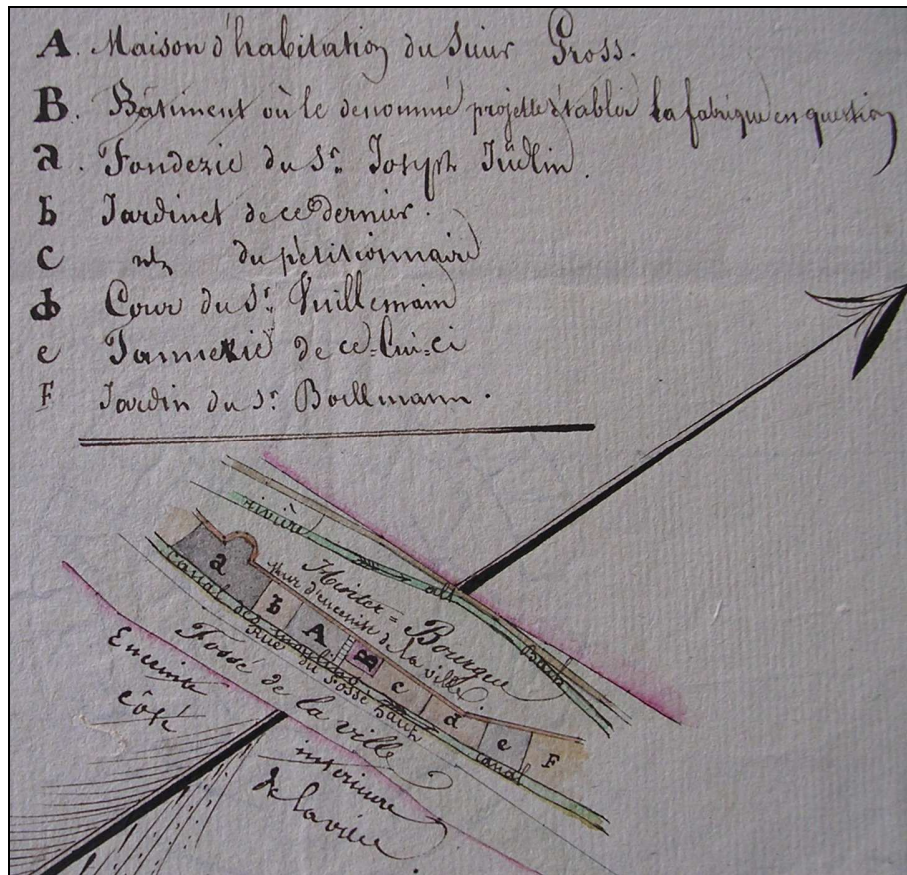 A. Maison d'habitation du Sieur Gross.
B. Bâtiment où le denommé projette établir la fabrique en question
a. Fonderie du Sr. Joseph Jüdlin.
b Jardinet de ce dernier.
c du pétitionnaire
d Cour du Sr. Vuillemain
e Tannerie de ce=lui=ci
F Jardin du Sr. Boellmann.
rivière alt Bach
Hinter=Bourque
mur d'enceinte de la ville
a b A B c d e F
canal des moulins canal
rue du fossé haut
Fossé de la ville
Enceinte intérieure
côté de la ville